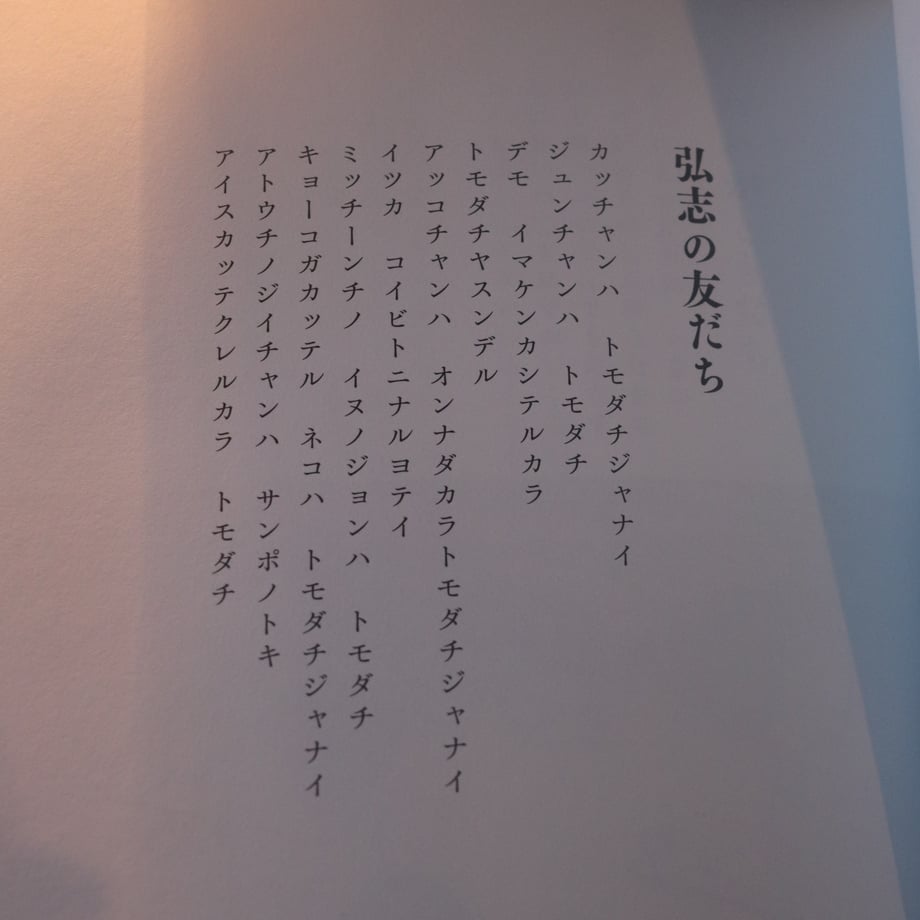 弘志の友だち
カッチャンハ　トモダチジャナイ
ジュンチャンハ　トモダチ
デモ　イマケンカシテルカラ
トモダチヤスンデル
アッコチャンハ　オンナダカラトモダチジャナイ
イツカ　コイビトニナルヨテイ
ミッチーンチノ　イヌノジョンハ　トモダチ
キョーコガカッテル　ネコハ　トモダチジャナイ
アトウチノジイチャンハ　サンポノトキ
アイスカッテクレルカラ　トモダチ